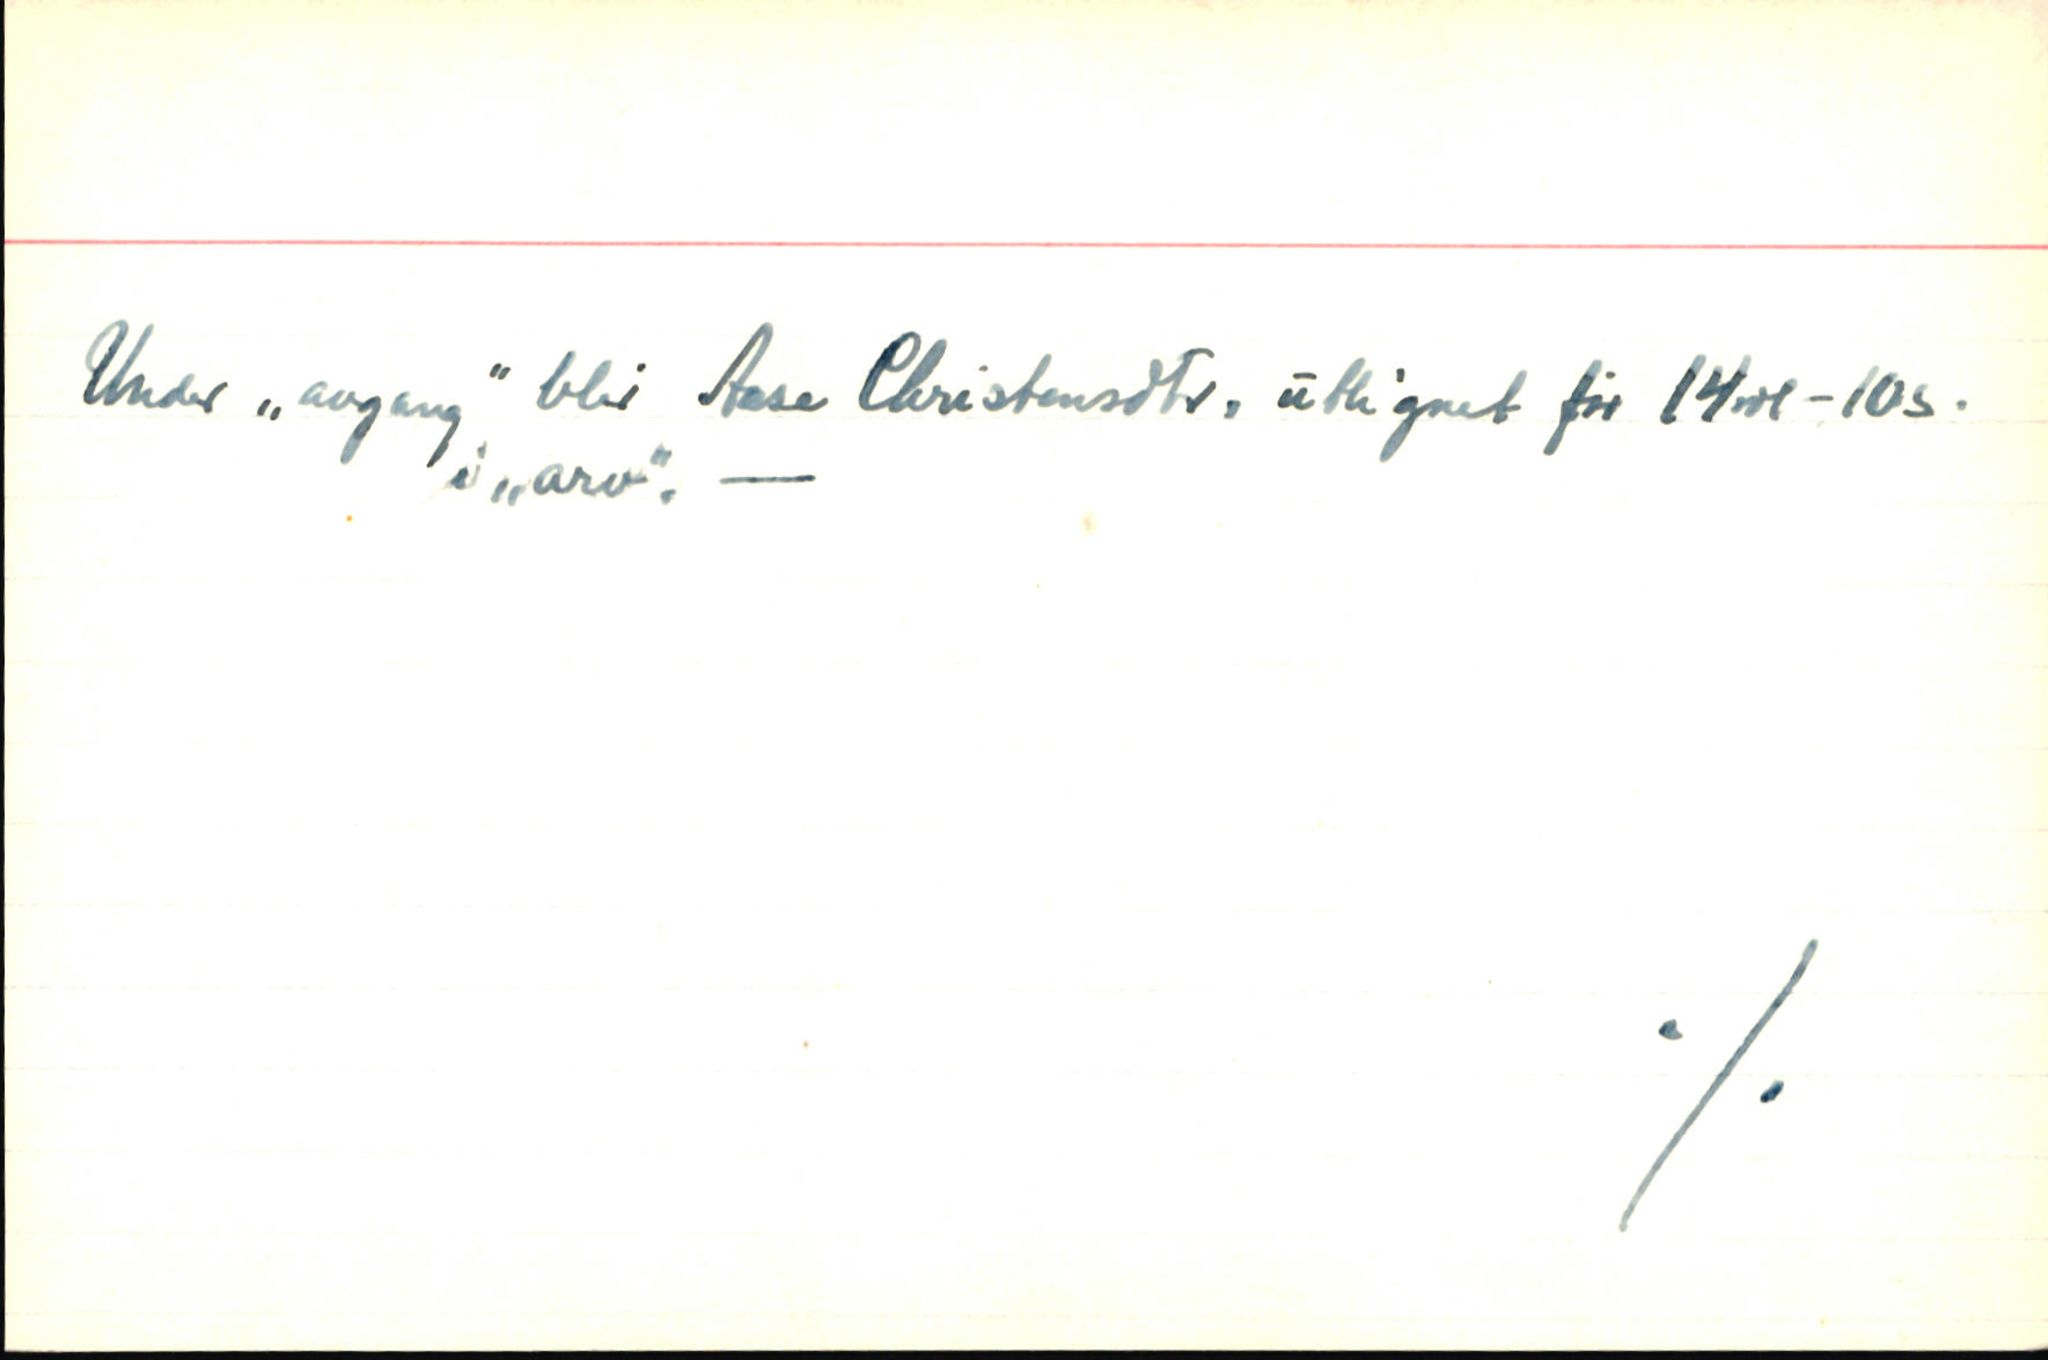 Under „avgang" blir Aase Christensdtr. ūtlignet for 14rdl-10s.
i „arv". —
./.